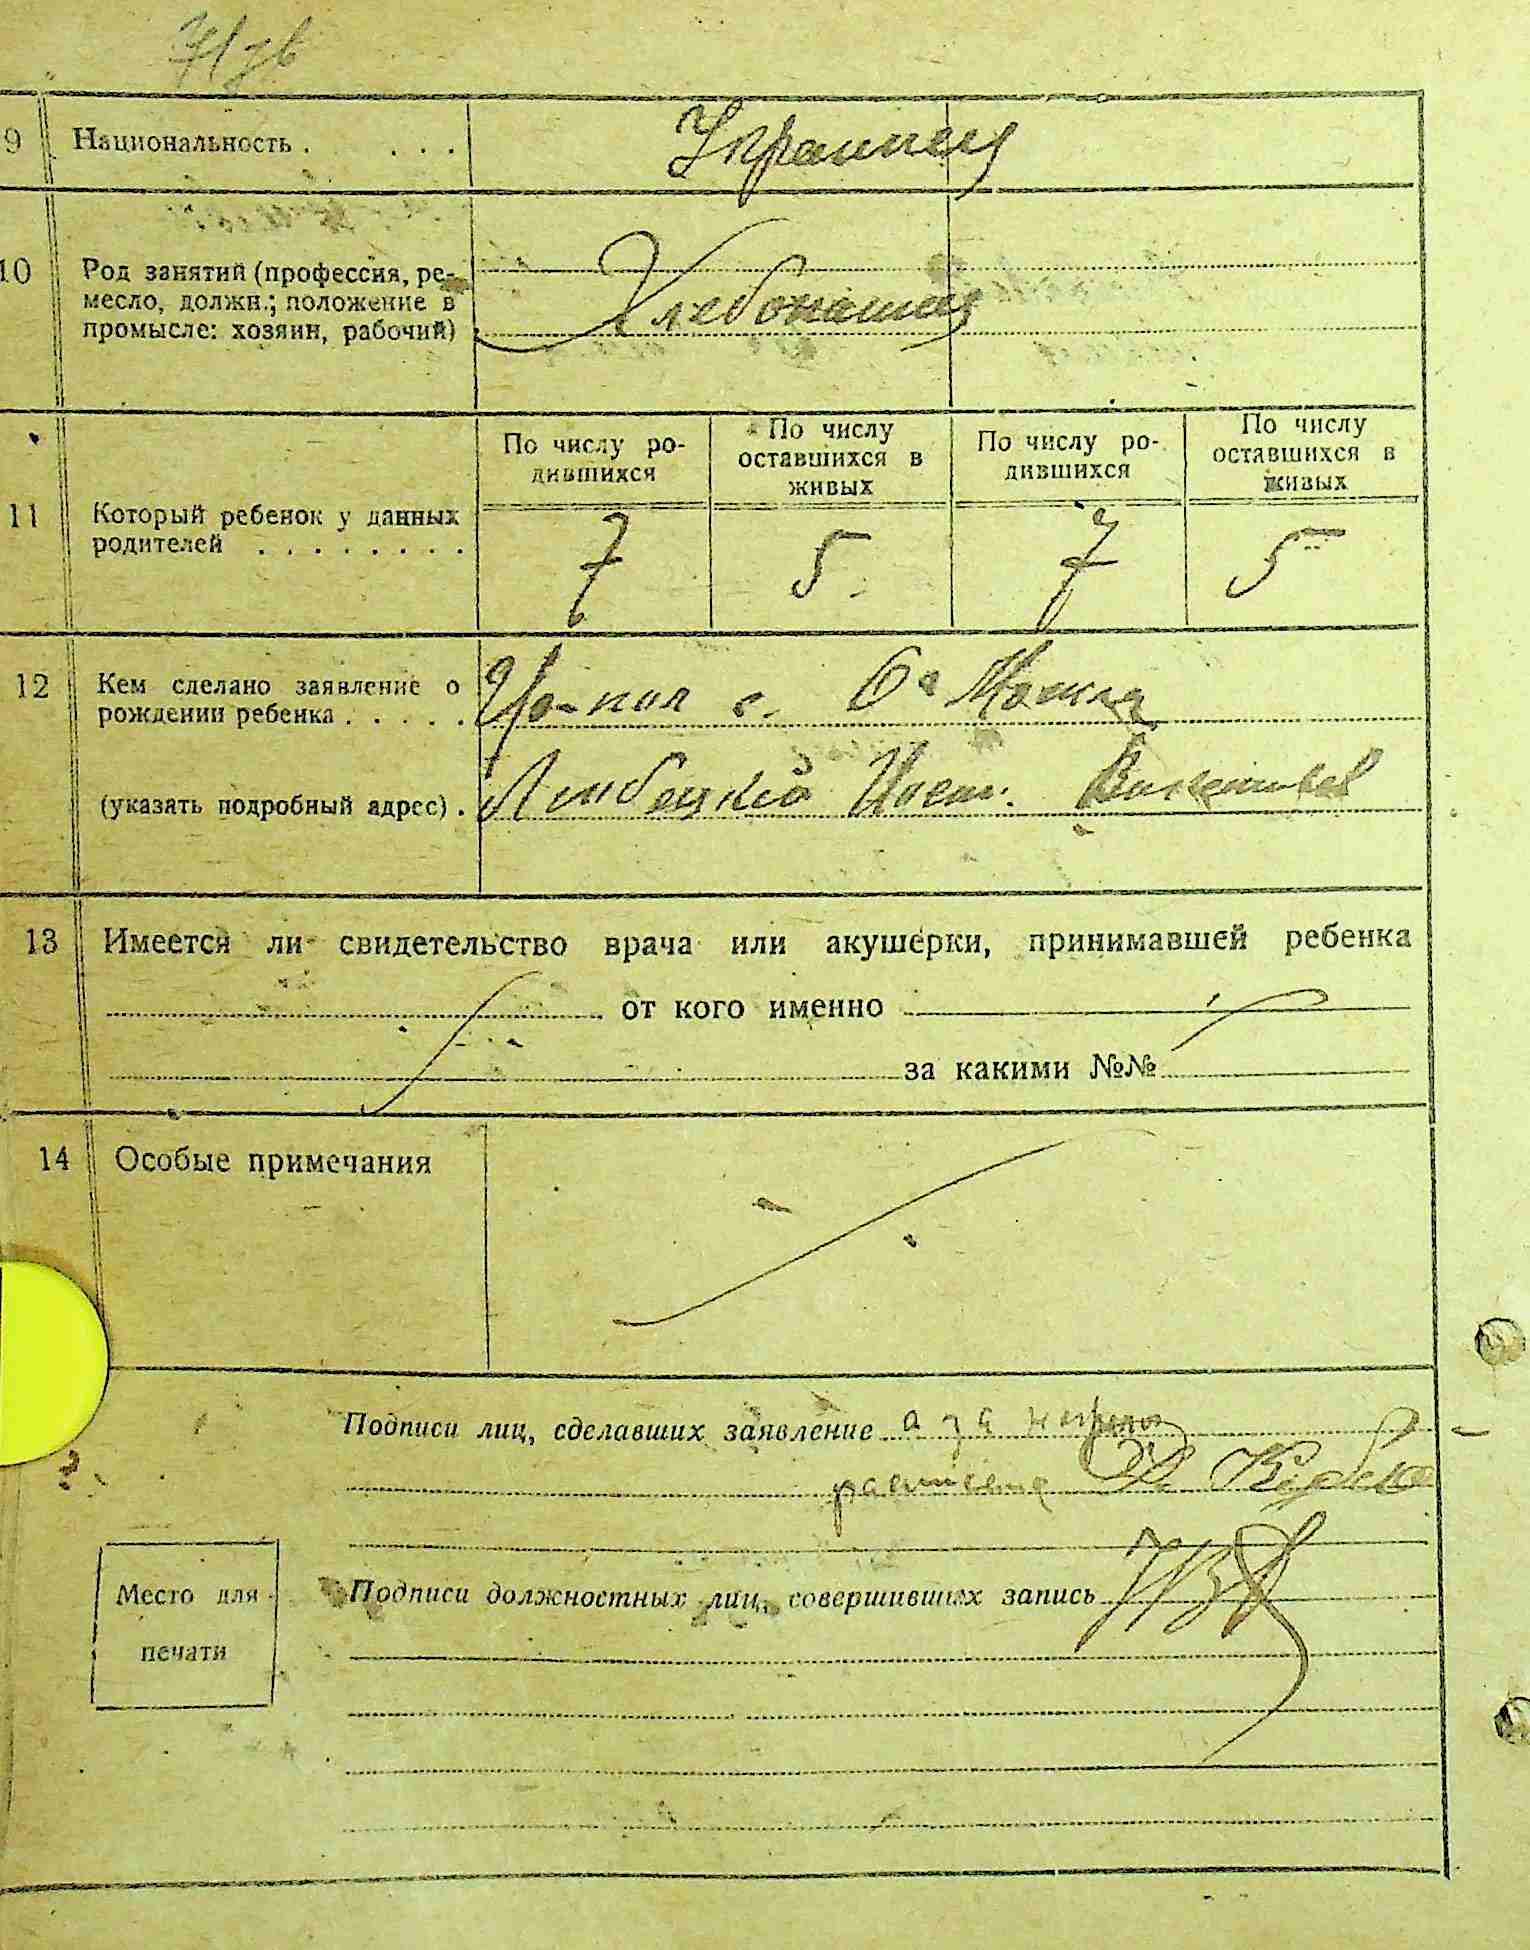 9 Национальность . . . . Украинец
10 Род занятий (профессия, ре-
месло, должн.; положение в
промысле: хозяин, рабочий)
Хлебопашец
По числу ро-
дившихся
По числу
оставшихся в
живых
По числу ро-
дившихся
По числу
оставшихся в
живых
11 Который ребенок у данных
родителей . . . . . . . .
7 5 7 5
12 Кем сделано заявление о
рождении ребенка . . . . .
(указать подробный адрес) .
13 Имеется ли свидетельство врача или акушерки, принимавшей ребенка
от кого именно
за какими №№
14 Особые примечания
Подписи лиц, сделавших заявление а за неграм
Подписи должностных лиц, совершивших запись
Место для
печати